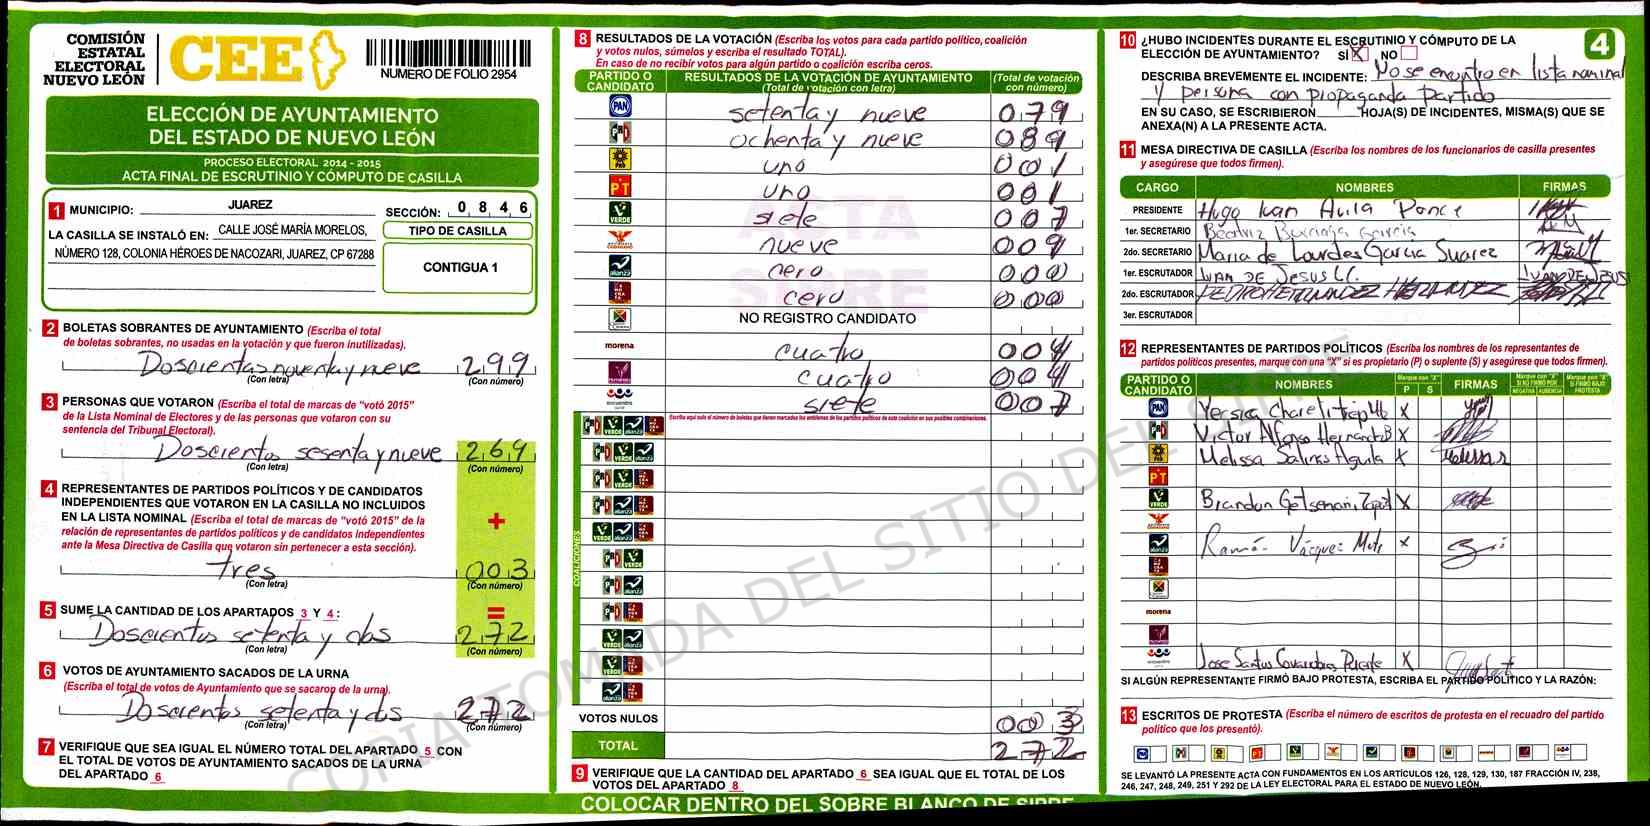 COMISIÓN
ESTATAL
ELECTORAL
NUEVO LEÓN
CEE
NUMERO DE FOLIO 2954
ELECCIÓN DE AYUNTAMIENTO
DEL ESTADO DE NUEVO LEÓN
PROCESO ELECTORAL 2014 - 2015
ACTA FINAL DE ESCRUTINIO Y CÓMPUTO DE CASILLA
1 MUNICIPIO: JUAREZ
SECCIÓN: 0 8 4 6
LA CASILLA SE INSTALÓ EN: CALLE JOSÉ MARÍA MORELOS,
NÚMERO 128, COLONIA HÉROES DE NACOZARI, JUAREZ, CP 67288
TIPO DE CASILLA
CONTIGUA 1
2 BOLETAS SOBRANTES DE AYUNTAMIENTO (Escriba el total
de boletas sobrantes, no usadas en la votación y que fueron inutilizadas).
Doscientas noventa y nueve 299
(Con letra) (Con número)
3 PERSONAS QUE VOTARON (Escriba el total de marcas de "votó 2015"
de la Lista Nominal de Electores y de las personas que votaron con su
sentencia del Tribunal Electoral).
Doscientos sesenta y nueve 269
(Con letra) (Con número)
4 REPRESENTANTES DE PARTIDOS POLÍTICOS Y DE CANDIDATOS
INDEPENDIENTES QUE VOTARON EN LA CASILLA NO INCLUIDOS
EN LA LISTA NOMINAL (Escriba el total de marcas de "votó 2015" de la
relación de representantes de partidos políticos y de candidatos independientes
ante la Mesa Directiva de Casilla que votaron sin pertenecer a esta sección).
+
tres 003
(Con letra) (Con número)
=
5 SUME LA CANTIDAD DE LOS APARTADOS 3 Y 4:
Doscientos setenta y dos 272
(Con letra) (Con número)
6 VOTOS DE AYUNTAMIENTO SACADOS DE LA URNA
(Escriba el total de votos de Ayuntamiento que se sacaron de la urna).
Doscientos setenta y dos 272
(Con letra) (Con número)
7 VERIFIQUE QUE SEA IGUAL EL NÚMERO TOTAL DEL APARTADO 5 CON
EL TOTAL DE VOTOS DE AYUNTAMIENTO SACADOS DE LA URNA
DEL APARTADO 6
8 RESULTADOS DE LA VOTACIÓN (Escriba los votos para cada partido político, coalición
y votos nulos, súmelos y escriba el resultado TOTAL).
En caso de no recibir votos para algún partido o coalición escriba ceros.
PARTIDO O CANDIDATO RESULTADOS DE LA VOTACIÓN DE AYUNTAMIENTO (Total de votación con letra) (Total de votación con número)
PAN setenta y nueve 079
PRD ochenta y nueve 089
uno 001
PT uno 001
VERDE siete 007
nueve 009
alianza cero 000
cero 000
NO REGISTRO CANDIDATO
morena cuatro 004
cuatro 004
encuentro siete 007
Escriba aquí sólo el número de boletas que tienen marcados los emblemas de los partidos políticos de esta coalición en sus posibles combinaciones.
COALICIONES
VOTOS NULOS 003
TOTAL 272
9 VERIFIQUE QUE LA CANTIDAD DEL APARTADO 6 SEA IGUAL QUE EL TOTAL DE LOS
VOTOS DEL APARTADO 8
COLOCAR DENTRO DEL SOBRE BLANCO DE SIPRE
ASTA
SIPRE
COPIA TOMADA DEL SITIO DEL SIPRE
4
10 ¿HUBO INCIDENTES DURANTE EL ESCRUTINIO Y CÓMPUTO DE LA
ELECCIÓN DE AYUNTAMIENTO? SÍ X NO
DESCRIBA BREVEMENTE EL INCIDENTE: No se encontro en lista nominal
y persona con propaganda Partido
EN SU CASO, SE ESCRIBIERON HOJA(S) DE INCIDENTES, MISMA(S) QUE SE
ANEXA(N) A LA PRESENTE ACTA.
11 MESA DIRECTIVA DE CASILLA (Escriba los nombres de los funcionarios de casilla presentes
y asegúrese que todos firmen).
CARGO NOMBRES FIRMAS
PRESIDENTE Hugo Ivan Avila Ponce
1er. SECRETARIO Beatriz Garcia
2do. SECRETARIO Maria de Lourdes Garcia Suarez
1er. ESCRUTADOR IVAN DE JESUS
2do. ESCRUTADOR PEDRO HERNANDEZ HERNANDEZ
3er. ESCRUTADOR
12 REPRESENTANTES DE PARTIDOS POLÍTICOS (Escriba los nombres de los representantes de
partidos políticos presentes, marque con una "X" si es propietario (P) o suplente (S) y asegúrese que todos firmen).
PARTIDO O CANDIDATO NOMBRES Marque con "X" P S FIRMAS Marque con "X" SI NO FIRMÓ POR: NEGATIVA AUSENCIA Marque con "X" SI FIRMÓ BAJO PROTESTA
PAN Yessica X
PRD Victor Alfonso X
Melissa Salinas Aguila X
PT
VERDE Brandon Getsemani X
alianza Ramón Vázquez X
morena
encuentro Jose Santos X
SI ALGÚN REPRESENTANTE FIRMÓ BAJO PROTESTA, ESCRIBA EL PARTIDO POLÍTICO Y LA RAZÓN:
13 ESCRITOS DE PROTESTA (Escriba el número de escritos de protesta en el recuadro del partido
político que los presentó).
SE LEVANTÓ LA PRESENTE ACTA CON FUNDAMENTOS EN LOS ARTÍCULOS 126, 128, 129, 130, 187 FRACCIÓN IV, 238,
246, 247, 248, 249, 251 Y 292 DE LA LEY ELECTORAL PARA EL ESTADO DE NUEVO LEÓN.